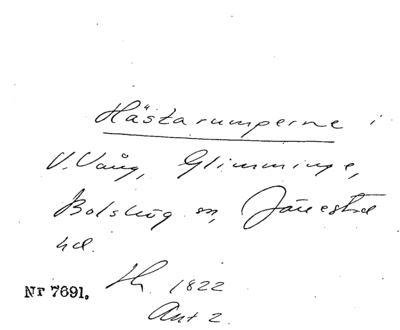 Hästarumperne i
V. Vång, Glimminge,
Bolshög sn, Järrestad
hd.
Nr 7691. Th. 1822
Ant 2.